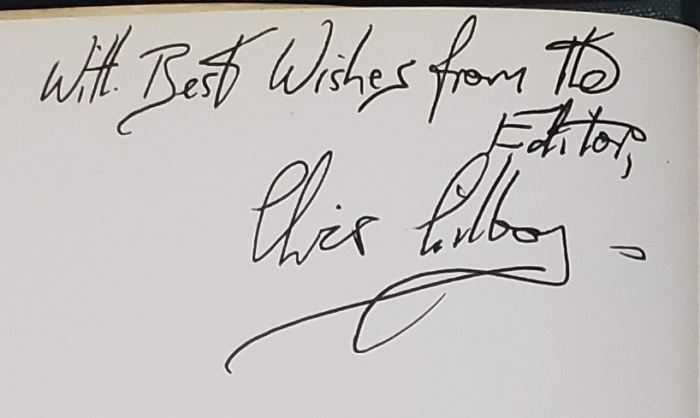 With Best Wishes from the
Editor,
Chris Gilbey